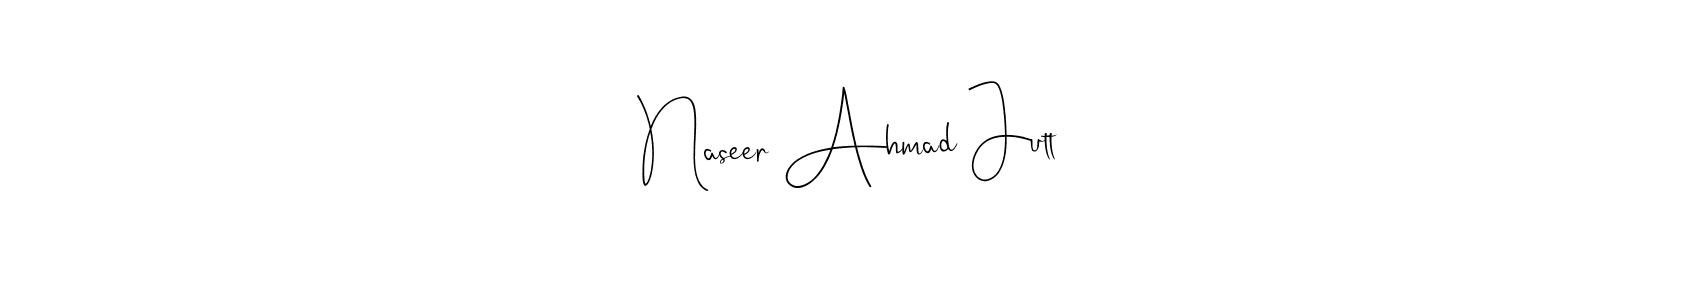 Naseer Ahmad Jutt